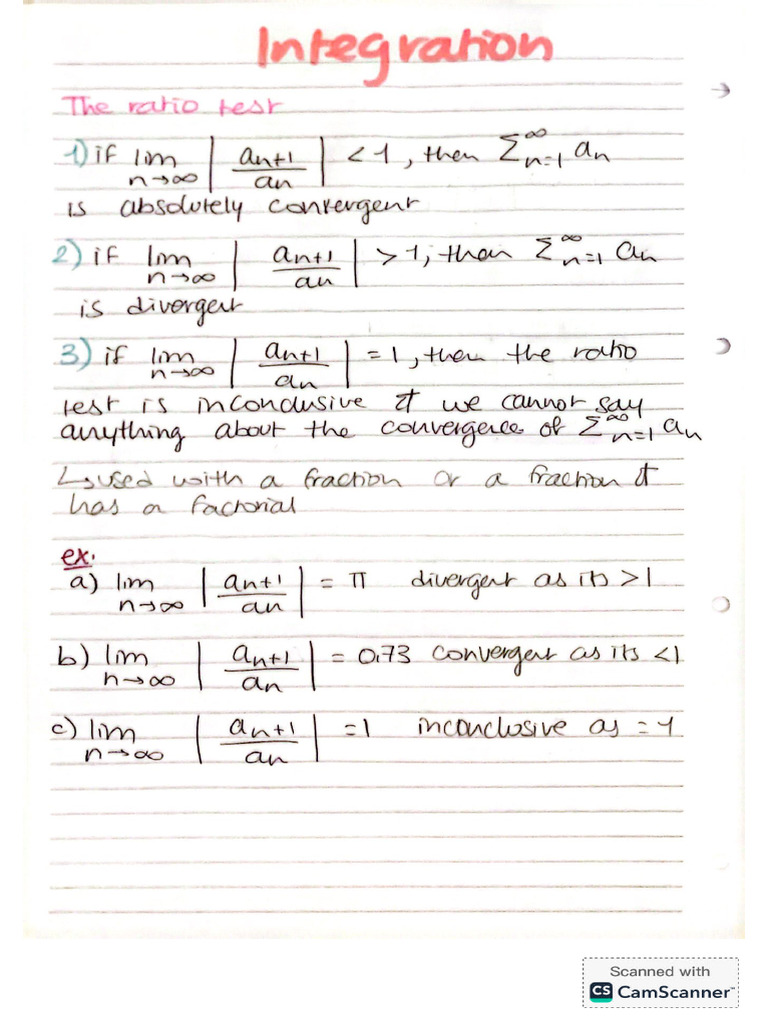 Integration
The ratio test
1) if lim n→∞ | an+1 / an | < 1, then Σ∞n=1 an
is absolutely convergent
2) if lim n→∞ | an+1 / an | > 1, then Σ∞n=1 an
is divergent
3) if lim n→∞ | an+1 / an | = 1, then the ratio
test is inconclusive & we cannot say
anything about the convergence of Σ∞n=1 an
↳ used with a fraction or a fraction &
has a factorial
ex.
a) lim n→∞ | an+1 / an | = π divergent as its >1
b) lim n→∞ | an+1 / an | = 0.73 convergent as its <1
c) lim n→∞ | an+1 / an | = 1 inconclusive as = 1
Scanned with
CS CamScanner